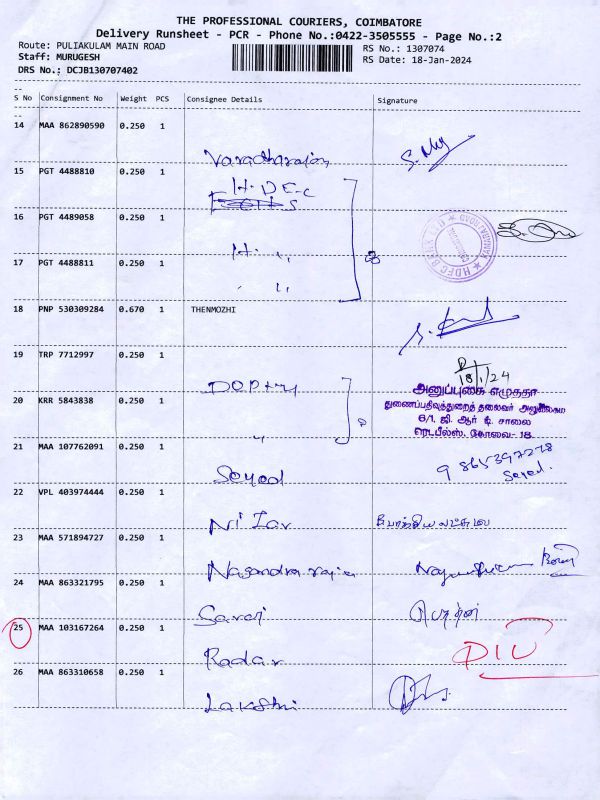 THE PROFESSIONAL COURIERS, COIMBATORE
Delivery Runsheet - PCR - Phone No.:0422-3505555 - Page No.:2
Route: PULIAKULAM MAIN ROAD
RS No.: 1307074
Staff: MURUGESH
RS Date: 18-Jan-2024
DRS No.: DCJB130707402
S No Consignment No Weight PCS Consignee Details Signature
14 MAA 862890590 0.250 1
Varadharajan
15 PGT 4488810 0.250 1
H.D.F.C
16 PGT 4489058 0.250 1
HDFC BANK LTD
17 PGT 4488811 0.250 1
18 PNP 530309284 0.670 1 THENMOZHI
19 TRP 7712997 0.250 1
18/1/24
அனுப்புகை எழுததா
20 KRR 5843838 0.250 1
துணைப்பதிவுத்துறைத் தலைவர் அலுவலகம்
6/1, ஜி. ஆர் டி. சாலை
ரெட்பீல்ஸ், கோவை- 18.
21 MAA 107762091 0.250 1
Seyed
9865397278
Seyed.
22 VPL 403974444 0.250 1
Nizar
23 MAA 571894727 0.250 1
24 MAA 863321795 0.250 1
Saroj
25 MAA 103167264 0.250 1
Radar
26 MAA 863310658 0.250 1
Lakshmi